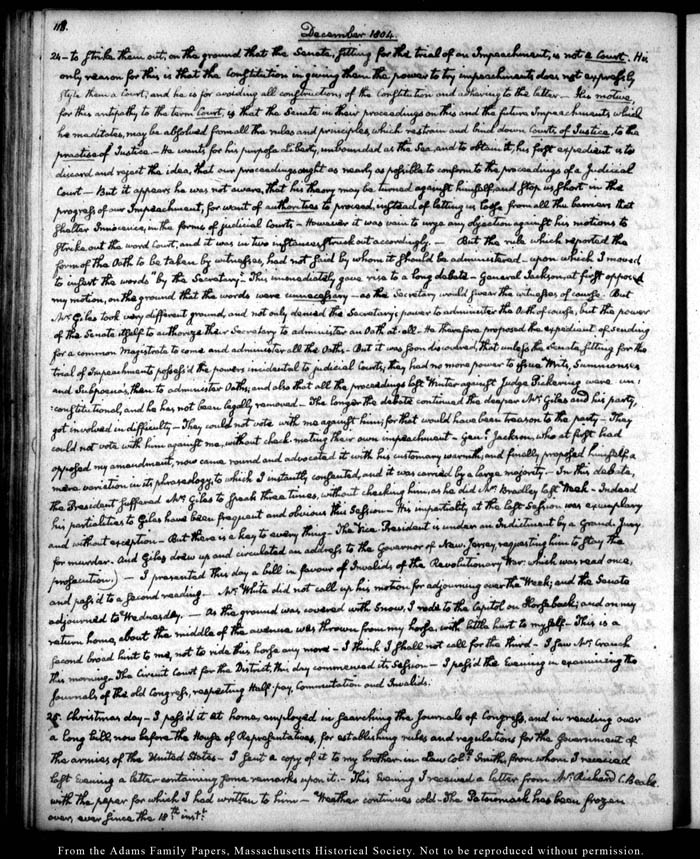 118.
December 1804.
24 – to strike them out, on the ground that the Senate, sitting for the trial of an Impeachment, is not a Court. His
only reason for this, is that the Constitution in giving them the power to try impeachments, does not expressly
style them a Court; and he is for avoiding all constructions of the Constitution and adhering to the letter – His motive
for this antipathy to the term Court, is that the Senate in their proceedings on this and the future Impeachments which
he meditates, may be absolved from all the rules and principles which restrain and bind down Courts of Justice, to the
practise of Justice – He wants for his purpose a liberty, unbounded as the Sea, and to obtain it, his first expedient is to
discard and reject the idea, that our proceedings ought as nearly as possible to conform to the proceedings of a Judicial
Court – But it appears he was not aware, that his theory may be turned against himself, and stop us short in the
progress of our Impeachment, for want of authorities to proceed, instead of letting us loose from all the barriers that
shelter Innocence, in the forms of judicial Courts – However it was vain to urge any objection against his motions to
strike out the word Court, and it was in two instances struck out accordingly. – But the rule which reported the
form of the Oath to be taken by witnesses, had not said by whom it should be administered – upon which I moved
to insert the words "by the Secretary". This immediately gave rise to a long debate – General Jackson, at first opposed
my motion, on the ground that the words were unnecessary – as the Secretary would swear the witnesses of course. But
Mr. Giles took very different ground, and not only denied the Secretary's power to administer the Oath of course, but the power
of the Senate itself to authorize their Secretary to administer an Oath at all – He therefore proposed the expedient of sending
for a common Magistrate to come and administer all the Oaths – But it was soon discovered, that unless the Senate, sitting for the
trial of Impeachments possess'd the powers incidental to judicial Courts, they had no more power to issue Writs, Summonses
and Subpoena's, than to administer Oaths; and also that all the proceedings last Winter against Judge Pickering were un:
:constitutional, and he has not been legally removed – The longer the debate continued the deeper Mr. Giles and his party,
got involved in difficulty – They could not vote with me against him; for that would have been treason to the party – They
could not vote with him against me, without check-mating their own impeachment – Genl. Jackson, who at first had
opposed my amendment, now came round and advocated it with his customary warmth, and finally, proposed himself a
mere variation in its phraseology, to which I instantly consented, and it was carried by a large majority – In this debate,
the President suffered Mr. Giles to speak three times, without checking him, as he did Mr. Bradley last Week – Indeed
his partialities to Giles have been frequent and obvious this Session – His impartiality at the last Session was exemplary
and without exception – But there is a key to every thing – The Vice President is under an Indictment by a Grand Jury
for murder. And Giles drew up and circulated an address to the Governor of New Jersey, requesting him to stay the
prosecution.) – I presented this day a bill in favour of Invalids of the Revolutionary War which was read once,
and pass'd to a second reading – Mr. White did not call up his motion for adjourning over the Week; and the Senate
adjourned to Wednesday. – As the ground was covered with Snow, I rode to the Capitol on Horseback; and on my
return home, about the middle of the avenue was thrown from my horse, with little hurt to myself – This is a
second broad hint to me, not to ride this horse any more – I think I shall not call for the third – I saw Mr. Cranch
this morning. The Circuit Court for the District, this day commenced its Session – I pass'd the Evening in examining the
Journals of the old Congress, respecting Half-pay, Commutation and Invalids.
25. Christmas day – I pass'd it at home, employed in searching the Journals of Congress, and in reading over
a long bill, now before the House of Representatives, for establishing rules and regulations for the Government of
the armies of the United States – I sent a copy of it to my brother-in-law Coll. Smith, from whom I received
last evening a letter containing some remarks upon it. – This Evening I received a letter from Mr. Richard C. Beale
with the paper for which I had written to him – Weather continues cold – The Patowmack has been frozen
over, ever since the 18th inst.
From the Adams Family Papers, Massachusetts Historical Society. Not to be reproduced without permission.